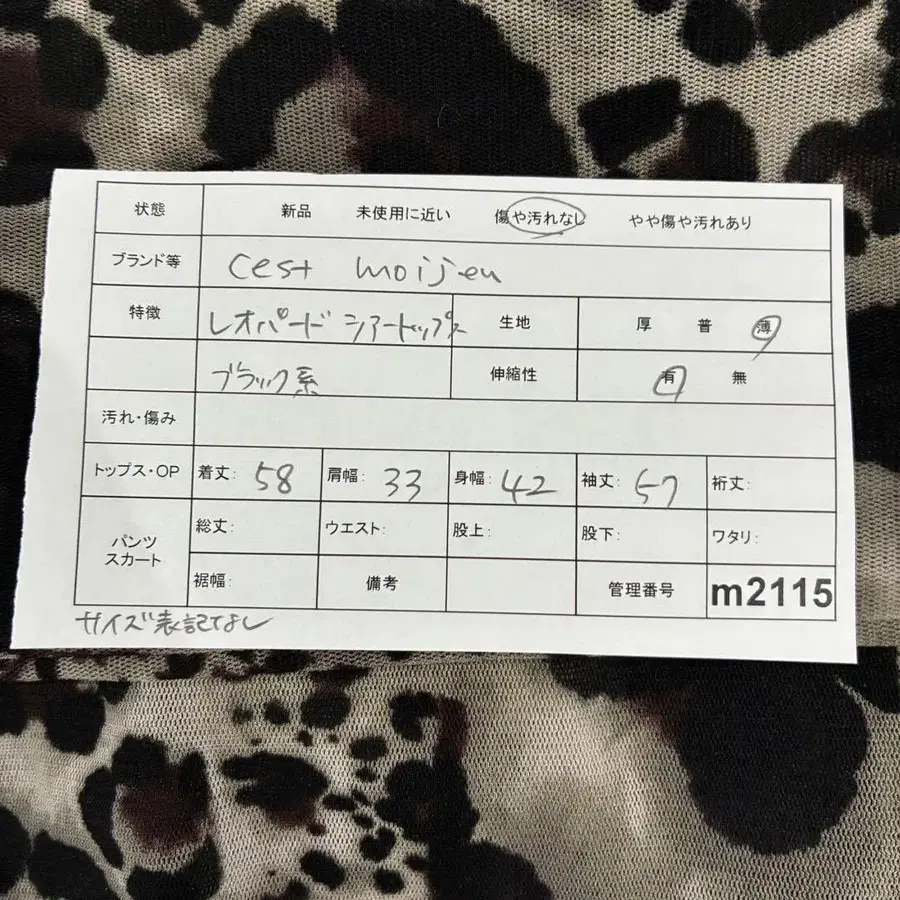 状態 新品 未使用に近い 傷や汚れなし やや傷や汚れあり
ブランド等 cest moijeu
特徴 レオパード シアートップス 生地 厚 普 薄
ブラック系 伸縮性 有 無
汚れ・傷み
トップス・OP 着丈: 58 肩幅: 33 身幅: 42 袖丈: 57 裄丈:
パンツ スカート 総丈: ウエスト: 股上: 股下: ワタリ:
裾幅: 備考 管理番号 m2115
サイズ表記なし